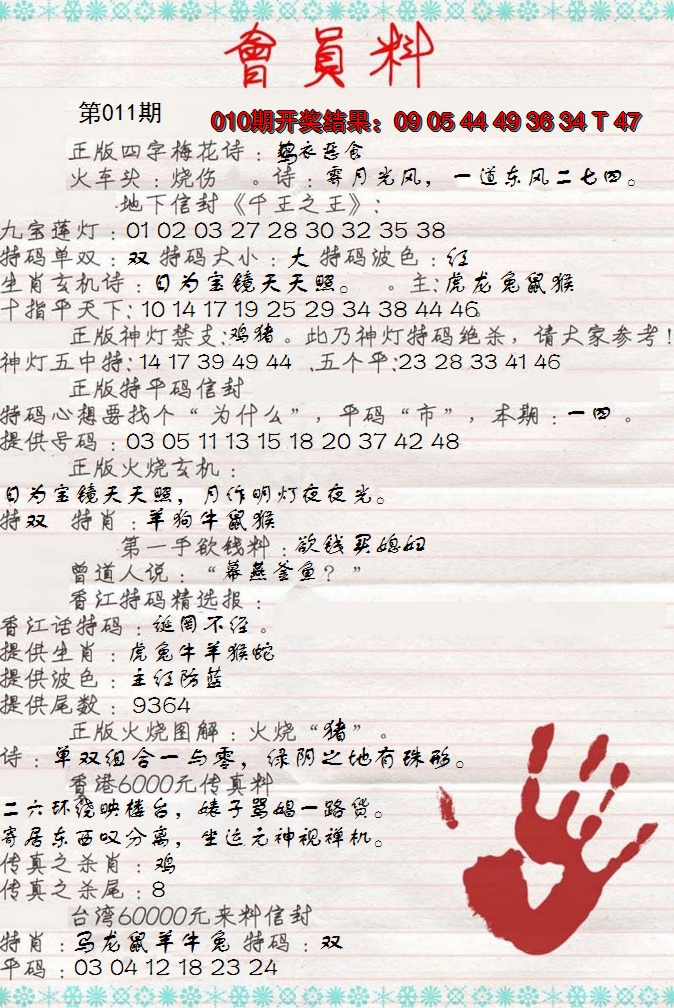 會員料
第011期
010期开奖结果：09 05 44 49 36 34 T 47
正版四字梅花诗：鹑衣恶食
火车头：烧伤 。诗：霁月光风，一道东风二七四。
地下信封《千王之王》：
九宝莲灯：01 02 03 27 28 30 32 35 38
特码单双：双 特码大小：大 特码波色：红
生肖玄机诗：日为宝镜天天照。 。主：虎龙兔鼠猴
十指平天下：10 14 17 19 25 29 34 38 44 46。
正版神灯禁支：鸡猪。此乃神灯特码绝杀，请大家参考！
神灯五中特：14 17 39 49 44 .五个平：23 28 33 41 46
正版特平码信封
特码心想要找个“为什么”，平码“市”，本期：一四。
提供号码：03 05 11 13 15 18 20 37 42 48
正版火烧玄机：
日为宝镜天天照，月作明灯夜夜光。
特双 特肖：羊狗牛鼠猴
第一手欲钱料：欲钱买媳妇
曾道人说：“幕燕釜鱼？”
香江特码精选报：
香江话特码：诞罔不经。
提供生肖：虎兔牛羊猴蛇
提供波色：主红防蓝
提供尾数：9364
正版火烧图解：火烧“猪”。
诗：单双组合一与零，绿阴之地有珠形。
香港6000元传真料
二六环绕映楼台，婊子骂娼一路货。
寄居东西叹分离，坐运元神视禅机。
传真之杀肖：鸡
传真之杀尾：8
台湾60000元来料信封
特肖：马龙鼠羊牛兔 特码：双
平码：03 04 12 18 23 24